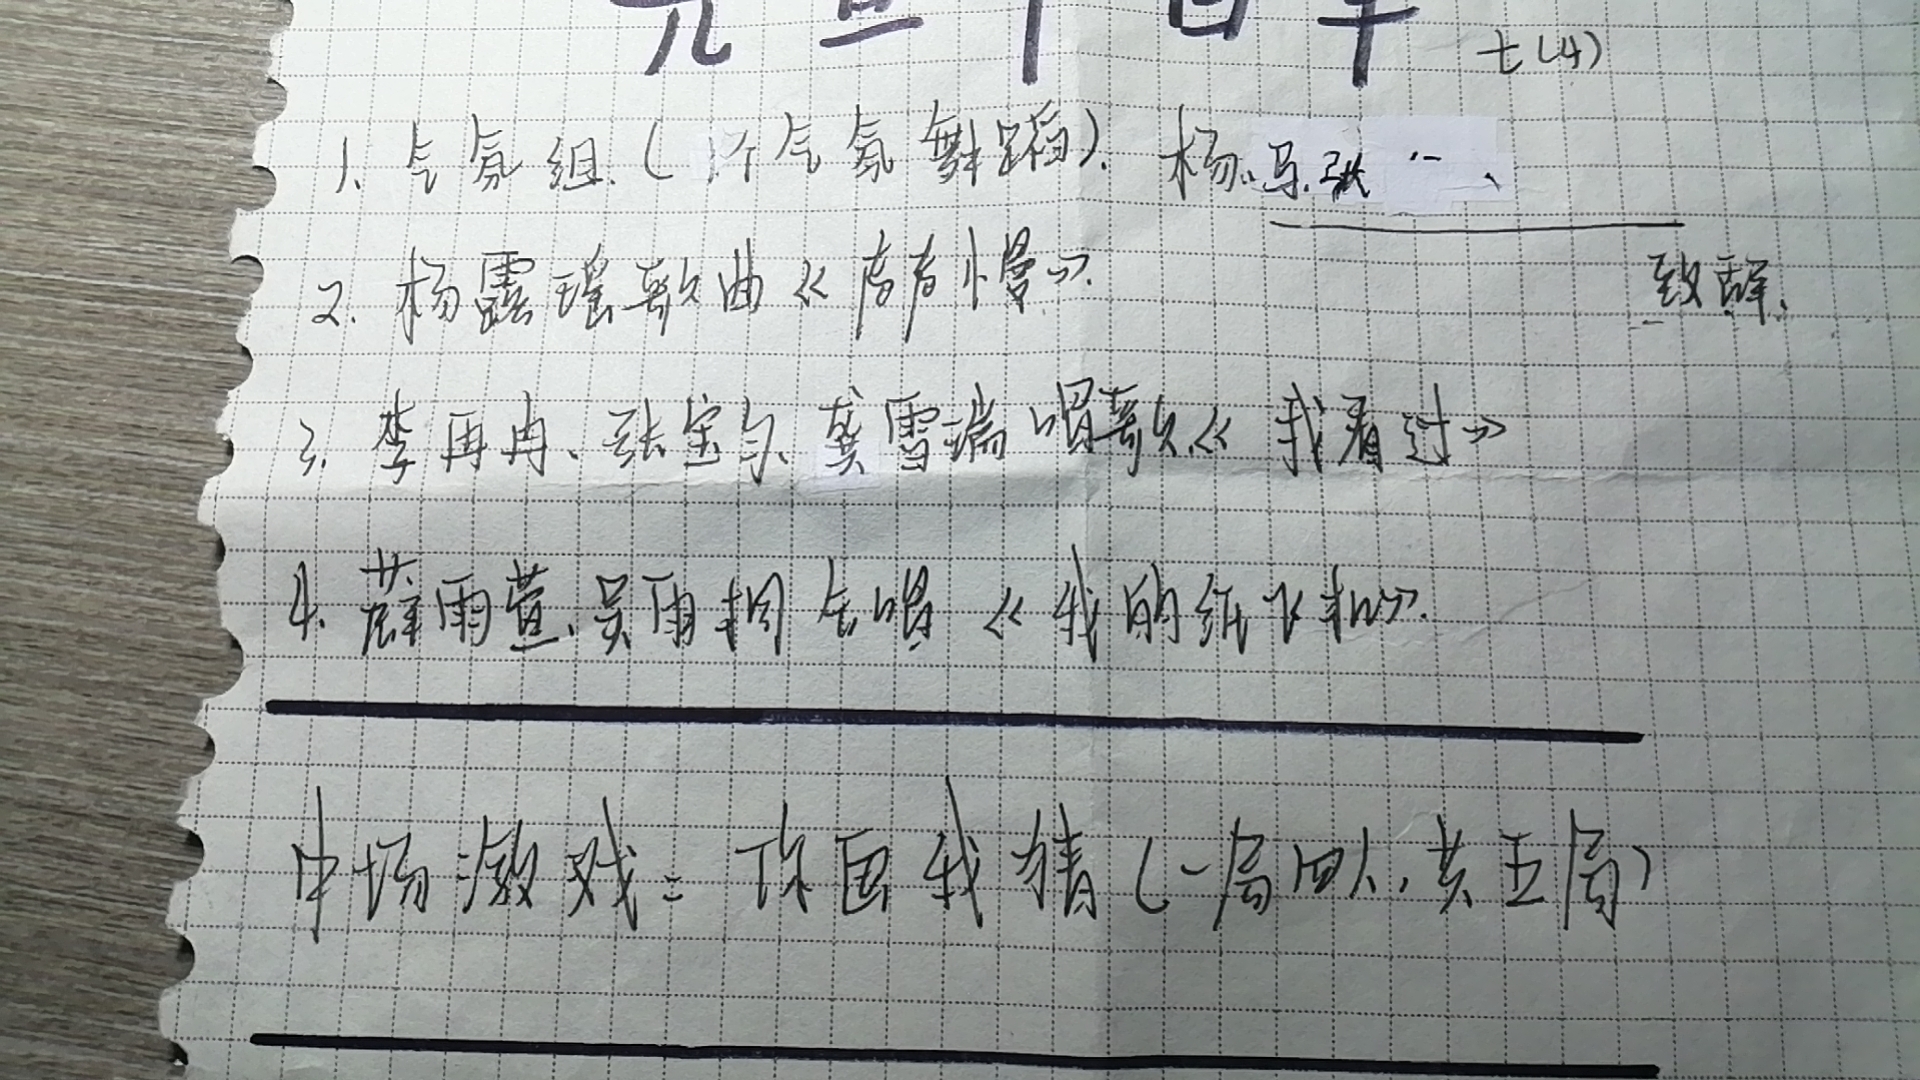 七(4)
1. 气氛组.(1个气氛舞蹈). 杨.马.张
致辞.
2. 杨露瑶歌曲《声声慢》.
3. 李再冉、张宝尹、龚雪瑞唱歌《我看过》
4. 薛雨萱、吴雨桐合唱《我的纸飞机》.
中场游戏:你画我猜(一局四人,共五局)